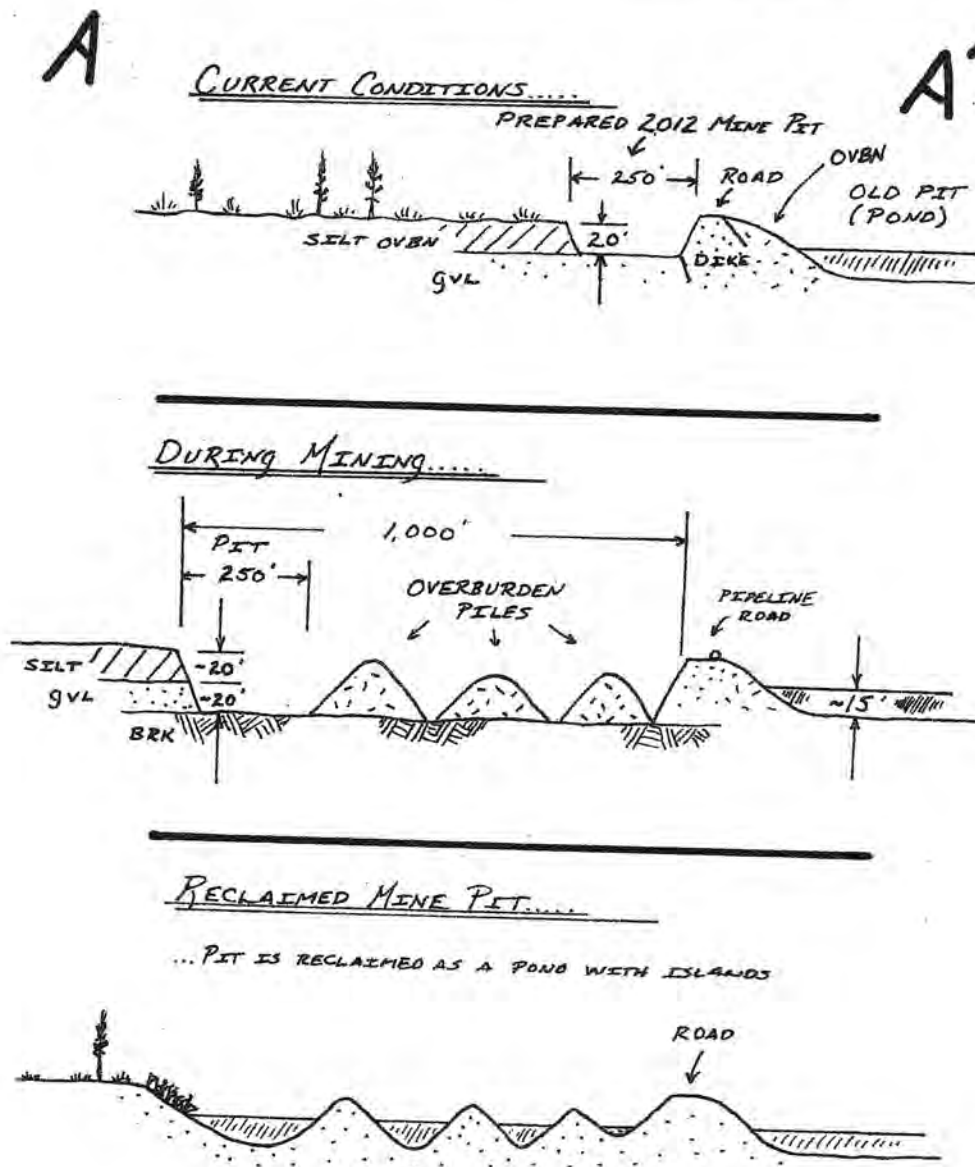 A
A'
CURRENT CONDITIONS.....
PREPARED 2012 MINE PIT
250'
ROAD
OVBN
OLD PIT
(POND)
SILT OVBN
20'
DIKE
gVL
DURING MINING.....
1,000'
PIT
250'
OVERBURDEN
PILES
PIPELINE
ROAD
SILT
~20'
gVL
~20'
~15'
BRK
RECLAIMED MINE PIT.....
...PIT IS RECLAIMED AS A POND WITH ISLANDS
ROAD